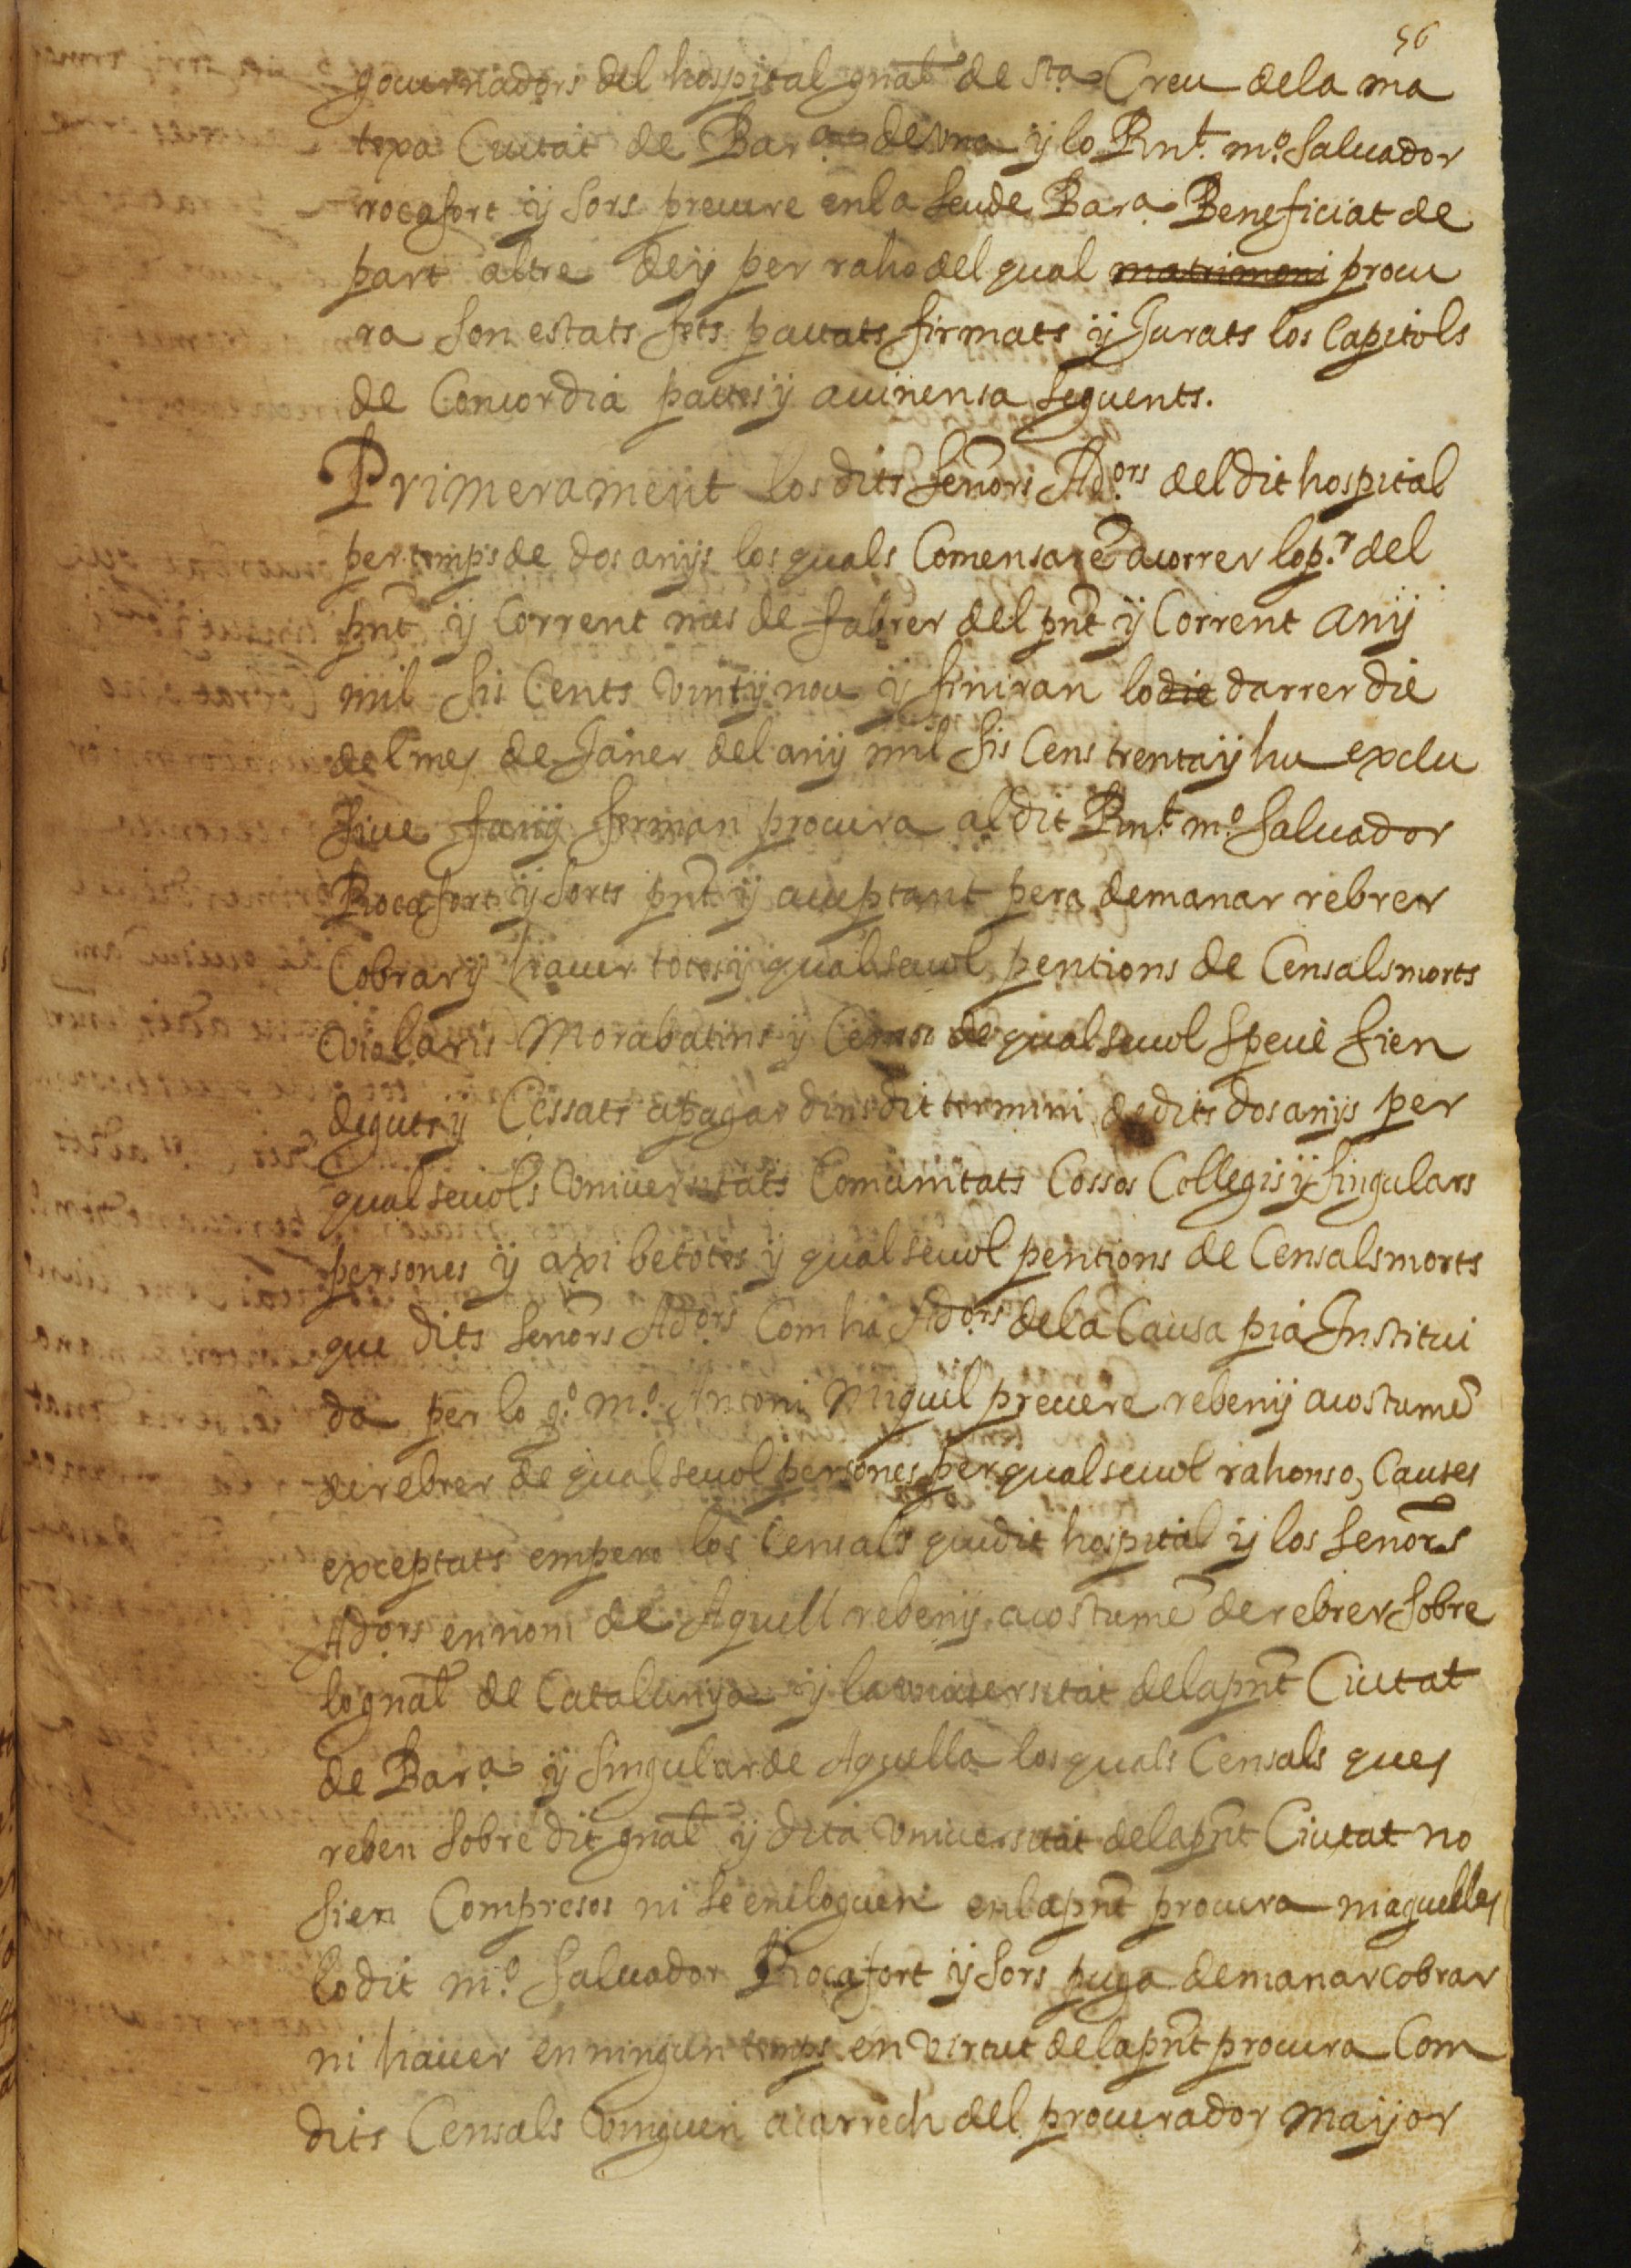 56
gouernadors del hospital gnãl de sta Creu dela ma
texa Ciutat de Bara de vna ÿ lo Rnt. mº. Saluador
rocafort ÿ Sors preuere enla Seu de Bara. Beneficiat de
part altre deÿ per raho del qual matrimoni procu
ra son estats fets pactats firmats ÿ Jurats los Capitols
de Concordia pactes ÿ auinensa seguents.
Primerament los dits señors Ad.ors del dit hospital
per temps de dos anÿs los quals Comensarẽ acorrer lo p.r del
pnt̃ ÿ Corrent mes de fabrer del pnt̃ ÿ Corrent anÿ
mil sis Cents vint ÿ nou ÿ finiran lo die darrer die
del mes de Janer del anÿ mil sis Cens trenta ÿ hu exclu
siue ferman procura al dit Rnt. mº. Saluador
Rocafort ÿ Sorts pnt̃ ÿ acceptant pera demanar rebrer
Cobrar ÿ hauer totes ÿ qualseuol pentions de Censals morts
violaris Morabatins ÿ Censos de qualseuol specie sien
deguts ÿ Cessats apagar dins dit termini de dits dos anÿs per
qualseuols vniuersitats Comunitats Cossos Collegis ÿ singulars
persones ÿ axi be totes ÿ qualseuol pentions de Censals morts
que dits señors Adors Com ha Ad.ors dela Causa pia Institui
da per lo qº. mº. Antoni Miquel preuere reben ÿ acostumẽ
de rebrer de qualseuol persones per qualseuol rahons o, Causes
exceptats empero los Censals que dit hospital ÿ los señors
Adors en nom de Aquell reben ÿ acostumẽ de rebrer sobre
lo gnãl de Catalunya ÿ la vniuersitat dela pnt̃ Ciutat
de Bara ÿ singular de Aquella los quals Censals ques
reben sobre dit gnãl ÿ dita vniuersitat dela pnt̃ Ciutat no
sien Compresos ni se encloguen enla pnt̃ procura ni aquelles
lo dit mº. Saluador Rocafort ÿ Sors puga demanar cobrar
ni hauer en ningun temps en virtut dela pnt̃ procura Com
dits Censals vinguen acarrech del procurador major